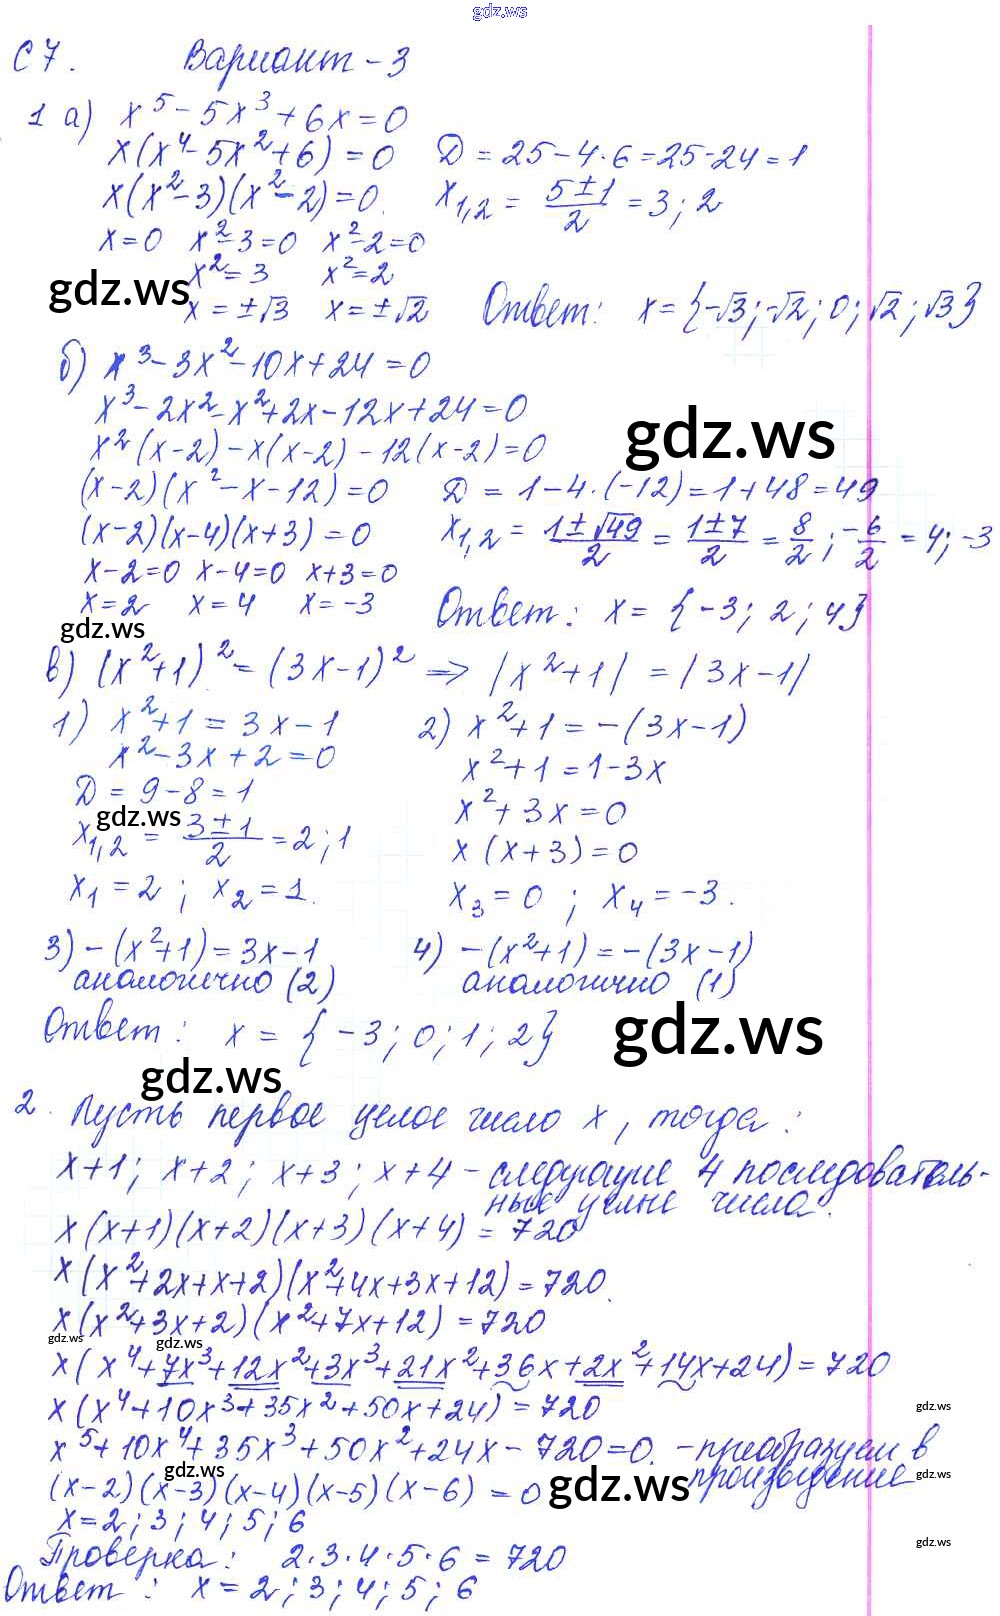 gdz.ws
С 7. Вариант - 3
1 а) x⁵ - 5x³ + 6x = 0
x(x⁴ - 5x² + 6) = 0 Д = 25 - 4·6 = 25 - 24 = 1
x(x² - 3)(x² - 2) = 0. x₁,₂ = (5 ± 1)/2 = 3 ; 2
x = 0 x² - 3 = 0 x² - 2 = 0
x² = 3 x² = 2
gdz.ws
x = ±√3 x = ±√2 Ответ: x = {-√3; -√2; 0; √2; √3}
б) x³ - 3x² - 10x + 24 = 0
x³ - 2x² - x² + 2x - 12x + 24 = 0
gdz.ws
x²(x - 2) - x(x - 2) - 12(x - 2) = 0
(x - 2)(x² - x - 12) = 0 Д = 1 - 4·(-12) = 1 + 48 = 49
(x - 2)(x - 4)(x + 3) = 0 x₁,₂ = (1 ± √49)/2 = (1 ± 7)/2 = 8/2 ; -6/2 = 4; -3
x - 2 = 0 x - 4 = 0 x + 3 = 0
x = 2 x = 4 x = -3 Ответ: x = {-3; 2; 4}
gdz.ws
в) (x² + 1)² = (3x - 1)² ⇒ |x² + 1| = |3x - 1|
1) x² + 1 = 3x - 1 2) x² + 1 = -(3x - 1)
x² - 3x + 2 = 0 x² + 1 = 1 - 3x
Д = 9 - 8 = 1 x² + 3x = 0
gdz.ws
x₁,₂ = (3 ± 1)/2 = 2 ; 1 x(x + 3) = 0
x₁ = 2 ; x₂ = 1. x₃ = 0 ; x₄ = -3.
3) -(x² + 1) = 3x - 1 4) -(x² + 1) = -(3x - 1)
аналогично (2) аналогично (1)
Ответ: x = {-3; 0; 1; 2}
gdz.ws
gdz.ws
2. Пусть первое целое число x, тогда:
x + 1; x + 2; x + 3; x + 4 - следующие 4 последователь-
ные целые числа.
x(x + 1)(x + 2)(x + 3)(x + 4) = 720
x(x² + 2x + x + 2)(x² + 4x + 3x + 12) = 720.
x(x² + 3x + 2)(x² + 7x + 12) = 720
gdz.ws gdz.ws
x(x⁴ + 7x³ + 12x² + 3x³ + 21x² + 36x + 2x² + 14x + 24) = 720
x(x⁴ + 10x³ + 35x² + 50x + 24) = 720
gdz.ws
x⁵ + 10x⁴ + 35x³ + 50x² + 24x - 720 = 0. - преобразуем в
произведение
gdz.ws gdz.ws gdz.ws
(x - 2)(x - 3)(x - 4)(x - 5)(x - 6) = 0
x = 2; 3; 4; 5; 6
gdz.ws
Проверка: 2·3·4·5·6 = 720
Ответ: x = 2; 3; 4; 5; 6